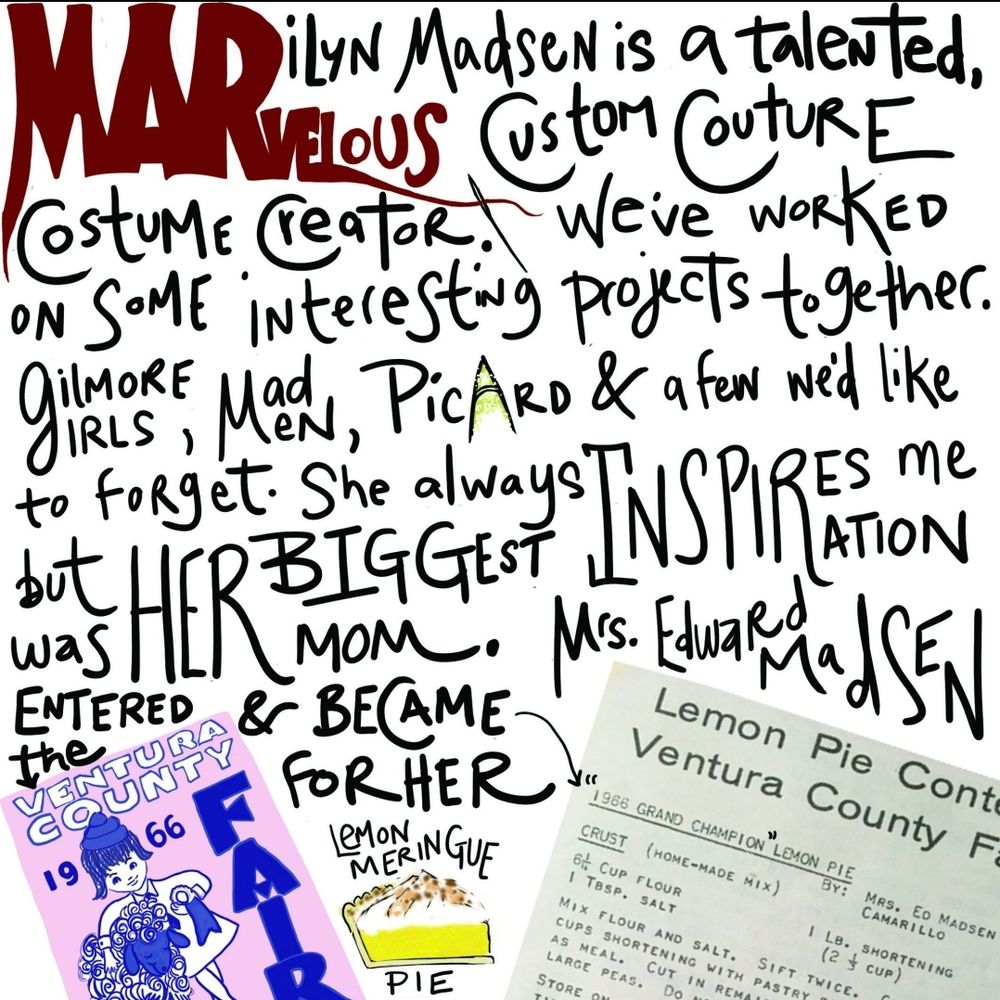 MARiLYN MadseN is a talented,
MARVELOUS CUSTOM COUTURE
COSTUME CREATOR. We've worked
ON SOME interesting projects together.
GILMORE GIRLS, Mad MeN, PICARD & a few we'd like
to forget. She always INSPIRES me
but HER BIGGEST INSPIRATION
was HER MOM. Mrs. Edward MadSEN
ENTERED & BECAME
the FOR HER
VENTURA
COUNTY
1966
FAIR
LEMON
MERINGUE
PIE
Lemon Pie Conte
Ventura County Fa
"1966 GRAND CHAMPION" LEMON PIE
BY: MRS. ED MADSEN
CAMARILLO
CRUST (HOME-MADE MIX)
6¼ CUP FLOUR
1 LB. SHORTENING
1 TBSP. SALT
(2 ⅓ CUP)
MIX FLOUR AND SALT. SIFT TWICE.
CUPS SHORTENING WITH PASTRY
AS MEAL. CUT IN REMA
LARGE PEAS. DO
STORE ON